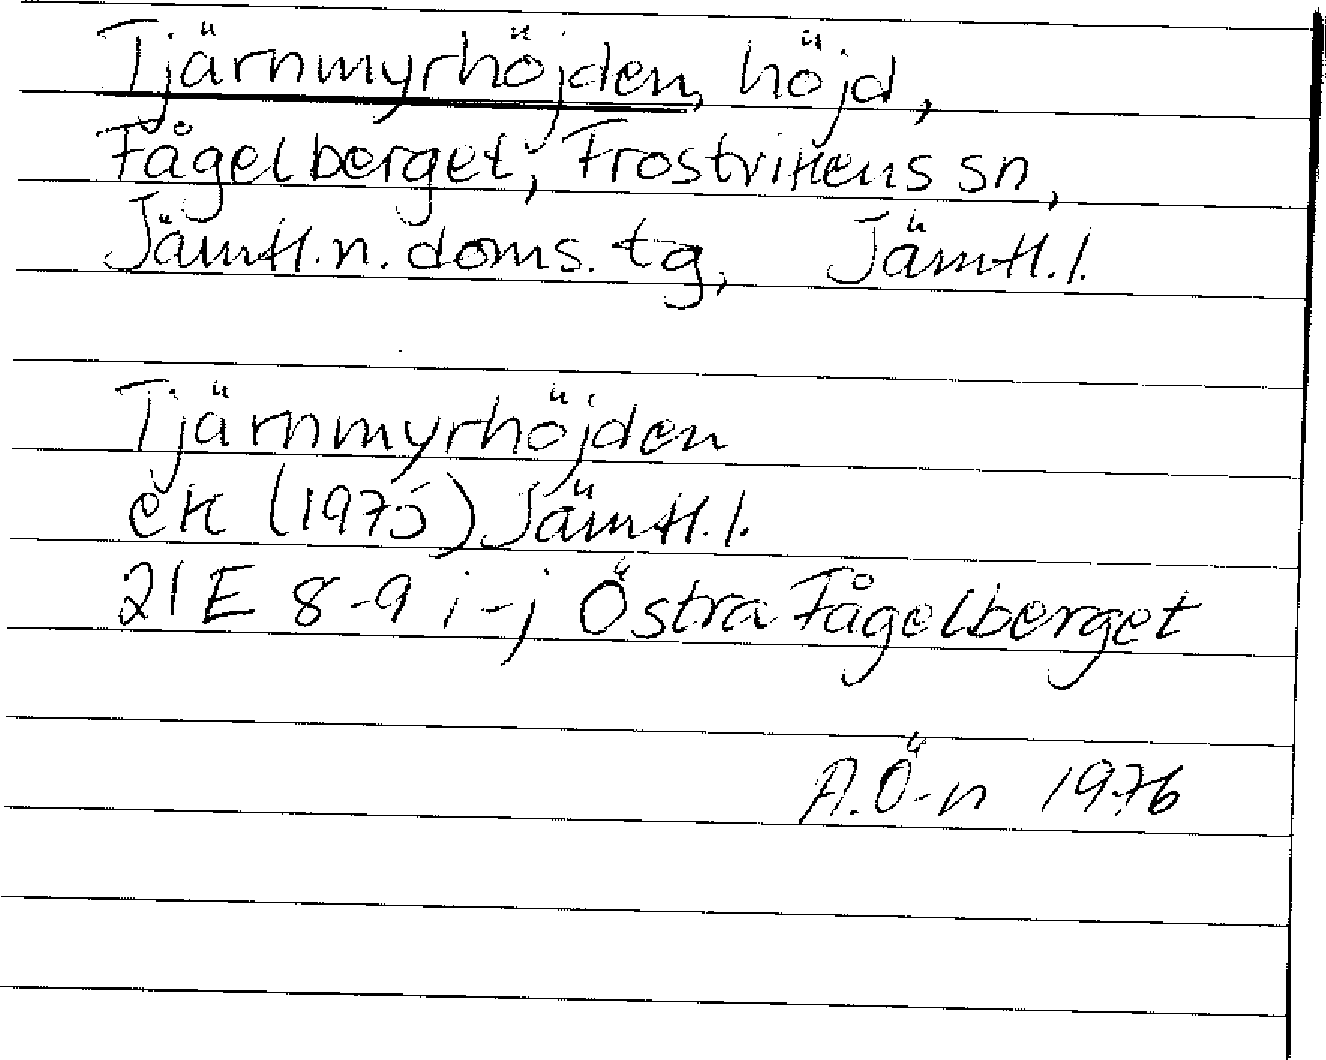 Tjärnmyrhöjden, höjd,
Fågelberget, Frostvikens sn,
Jämtl. n. doms. tg, Jämtl. l.
Tjärnmyrhöjden
ek (1975) Jämtl. l.
21 E 8-9 i-j Östra Fågelberget
A. Ö-n 1976